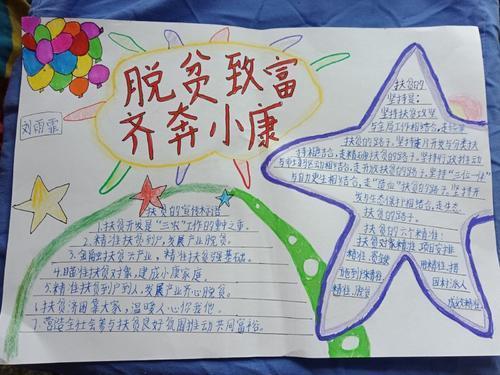 脱贫致富
齐奔小康
刘雨霏
扶贫的宣传标语
1.扶贫开发是"三农"工作的重中之重。
2.精准扶贫到户,发展产业脱贫。
3.金融扶贫兴产业,精准扶贫强基础。
4.瞄准扶贫对象,建成小康家庭。
5.精准扶贫到户到人,发展产业齐心脱贫。
6.扶贫济困靠大家,温暖人心你我他。
7.营造全社会参与扶贫良好氛围推动共同富裕。
扶贫的
坚持是:
坚持扶贫攻坚
与全局工作相结合,走统筹
扶贫的路子,坚持连片开发与分类扶
持相结合,走精确扶贫的路子,坚持行政推动
与市场驱动相结合,走开放扶贫的路子,坚持"三位一体"
与自力更生相结合,走"造血"扶贫的路子,坚持开
发与生态保护相结合,走生态
扶贫的路子。
扶贫的六个精准:
扶贫对象精准,项目安排
精准,资金
使用精准,措
施到户精准,
因村派人
精准,脱贫
成效精准。